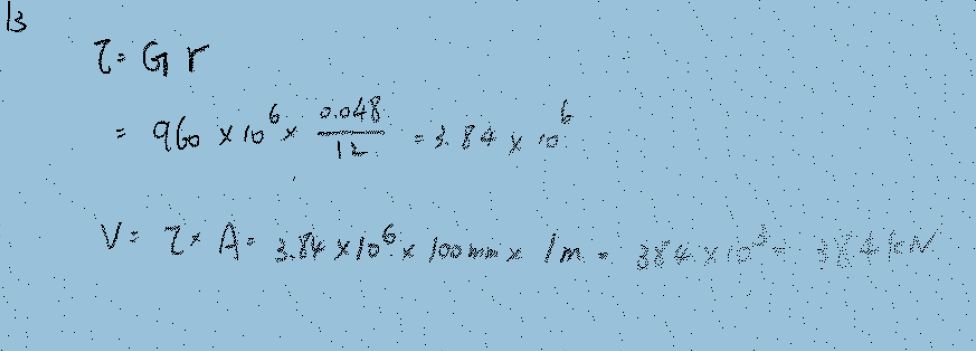 13
τ = G r
= 960 × 10^6 × 0.048/12 = 3.84 × 10^6
V = τ × A = 3.84 × 10^6 × 100mm × 1m = 384 × 10^3 = 384 kN